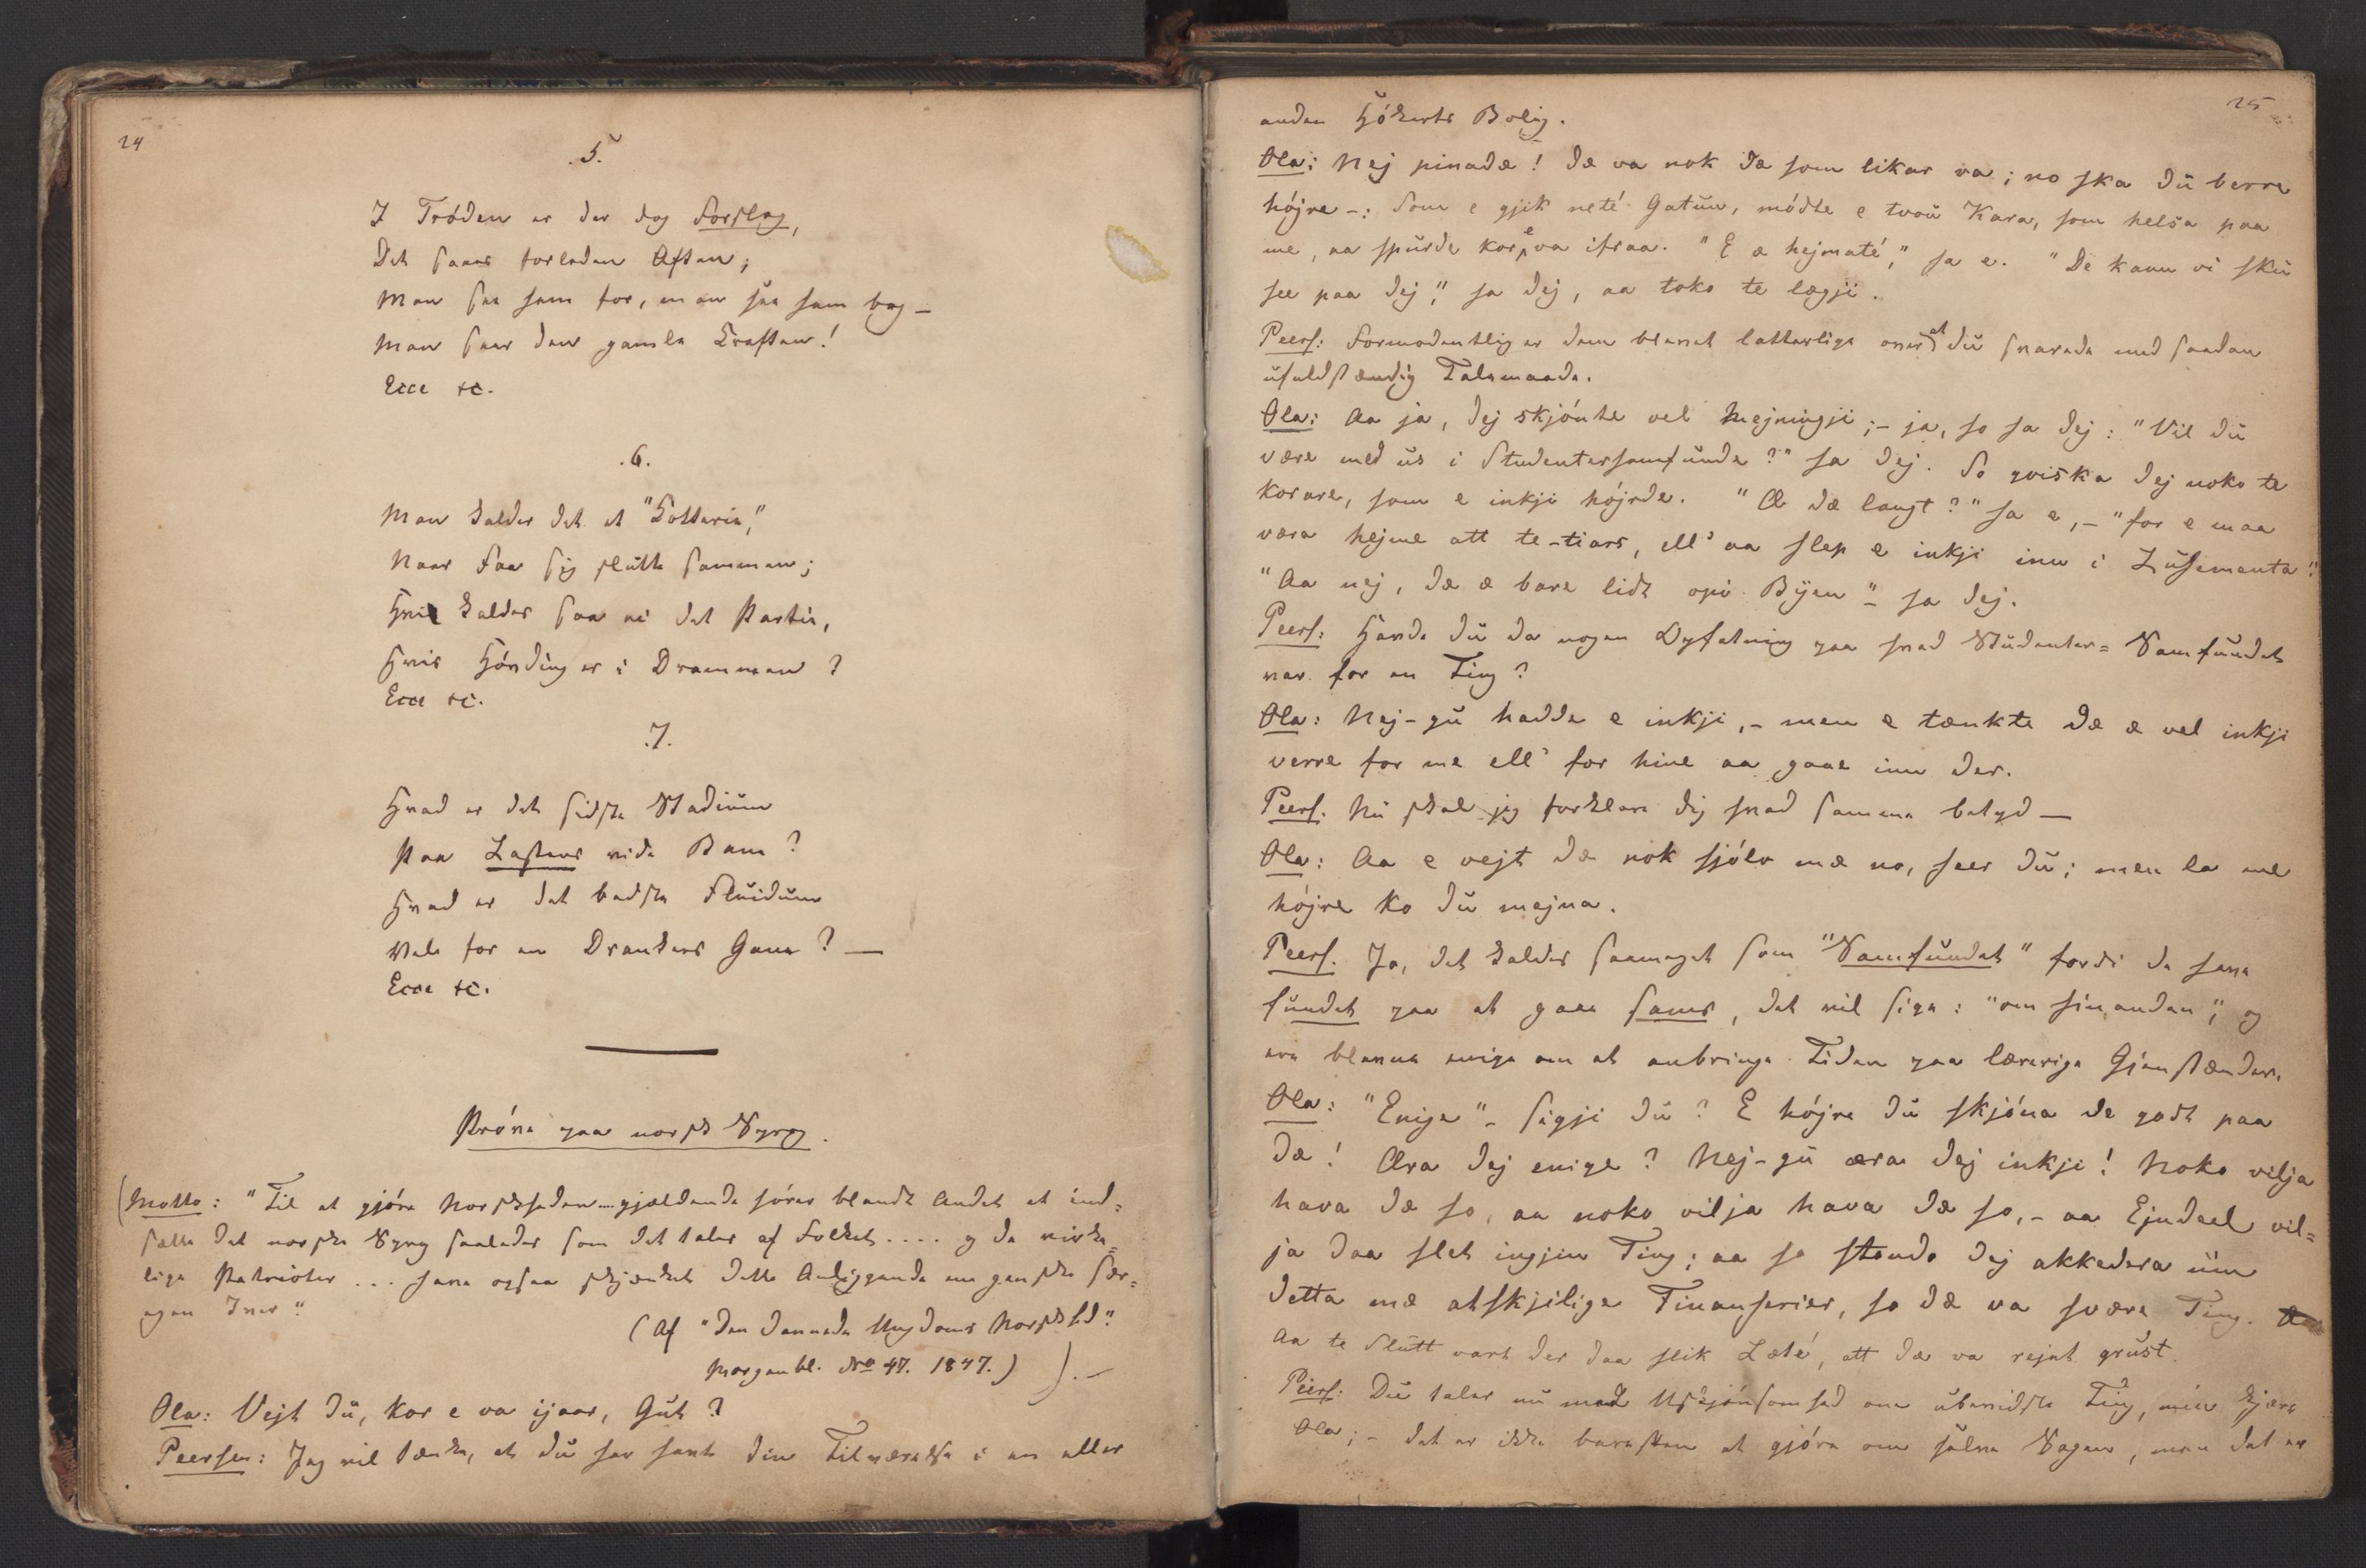 24
.5.
I Trøden er der dog Forslag,
Det saaes forleden Aften;
Man saa ham for, man saa ham bag –
Man saae den gamle Kraften!
Ecce &c.
.6.
Man kalder det et "Lotteri",
Naar Faa sig slutte sammen;
Hvi kalder saa ei det Parti,
Hvis Høvding er i Drammen?
Ecce &c.
.7.
Hvad er det sidste Stadium
Paa Lastens vide Bane?
Hvad er det bedste Fluidum
Vel for en Drankers Gane? –
Ecce &c.
Prøve paa norsk Sprog.
(Motto: "Til at gjøre Norskheden .... gjældende hører blandt Andet at ind=
sætte det norske Sprog saaledes som det tales af Folket .... og de virke=
lige Patrioter ... have ogsaa skjænket dette Anliggende en ganske sær=
egen Iver"
(Af "Den dannede Ungdoms Norskhed"
Morgenbl. No 47. 1847.) ). –
Ola: Vejt du, kor e va ijaar, Gut?
Peersen: Jeg vil tænke, at du har havt din Tilværelse i en eller
25
anden Høkers Bolig.
Ola: Nej pinadæ! Dæ va nok dæ som likar va; no ska du berre
højre –: Som e gjik neté Gatun, mødte e tvou Kara, som helsa paa
me, aa spurde kor e va ifraa. "E æ hejmaté," sa e. "De kann vi sku
see paa dej," sa dej, aa toko te lægji.
Peers: Formodentlig er dem blevet latterlige over at du svarede med saadan
ufuldstændig Talemaade.
Ola: Aa ja, dej skjønte vel Mejningji; – ja, so sa dej: "Vil du
være med us i Studentersamfunde?" sa dej. So qviska dej noko te
korare, som e inkji højrde. "Æ dæ langt?" sa e, – "for e maa
væra hejme att te-tiars, ell' aa slep e inkji inn i Lusementa"
"Aa nej, dæ æ bare lidt opi Byen" – sa dej.
Peers: Havde du da nogen Opfatning paa hvad Studenter= Samfundet
var for en Ting?
Ola: Nej-gu hadde e inkji, – men e tænkte dæ æ vel inkji
verre for me ell' for hine aa gaae inn der.
Peers. Nu skal jeg forklare dig hvad samme betyd –
Ola: Aa e vejt dæ nok sjølv mæ no, seer du; men la me
højre ko du mejna.
Peers. Jo, det kaldes saameget som "Samfundet" fordi de have
fundet paa at gaae sams, det vil sige: "om hinanden", og
ere blevne enige om at anbringe Tiden paa lærerige Gjenstænder.
Ola: "Enige" – sigji du? E højre du skjøna de godt paa
dæ! Æra dej enige? Nej-gu æra dej inkji! Noko vilja
hava dæ so, aa noko vilja hava dæ so, – aa Ejndeel vil=
ja daa slet ingjin Ting; aa so stondo dej akkedera um
detta mæ atskjilige Finanserier, so dæ va svære Ting.
Aa te Slutt vart der daa slik Læté, att dæ va rejnt grust.
Peers: Du taler nu med Uskjønsomhed om ubevidste Ting, min kjære
Ola; – det er ikke bare Ven at gjøre om sælve Sagen, men det er